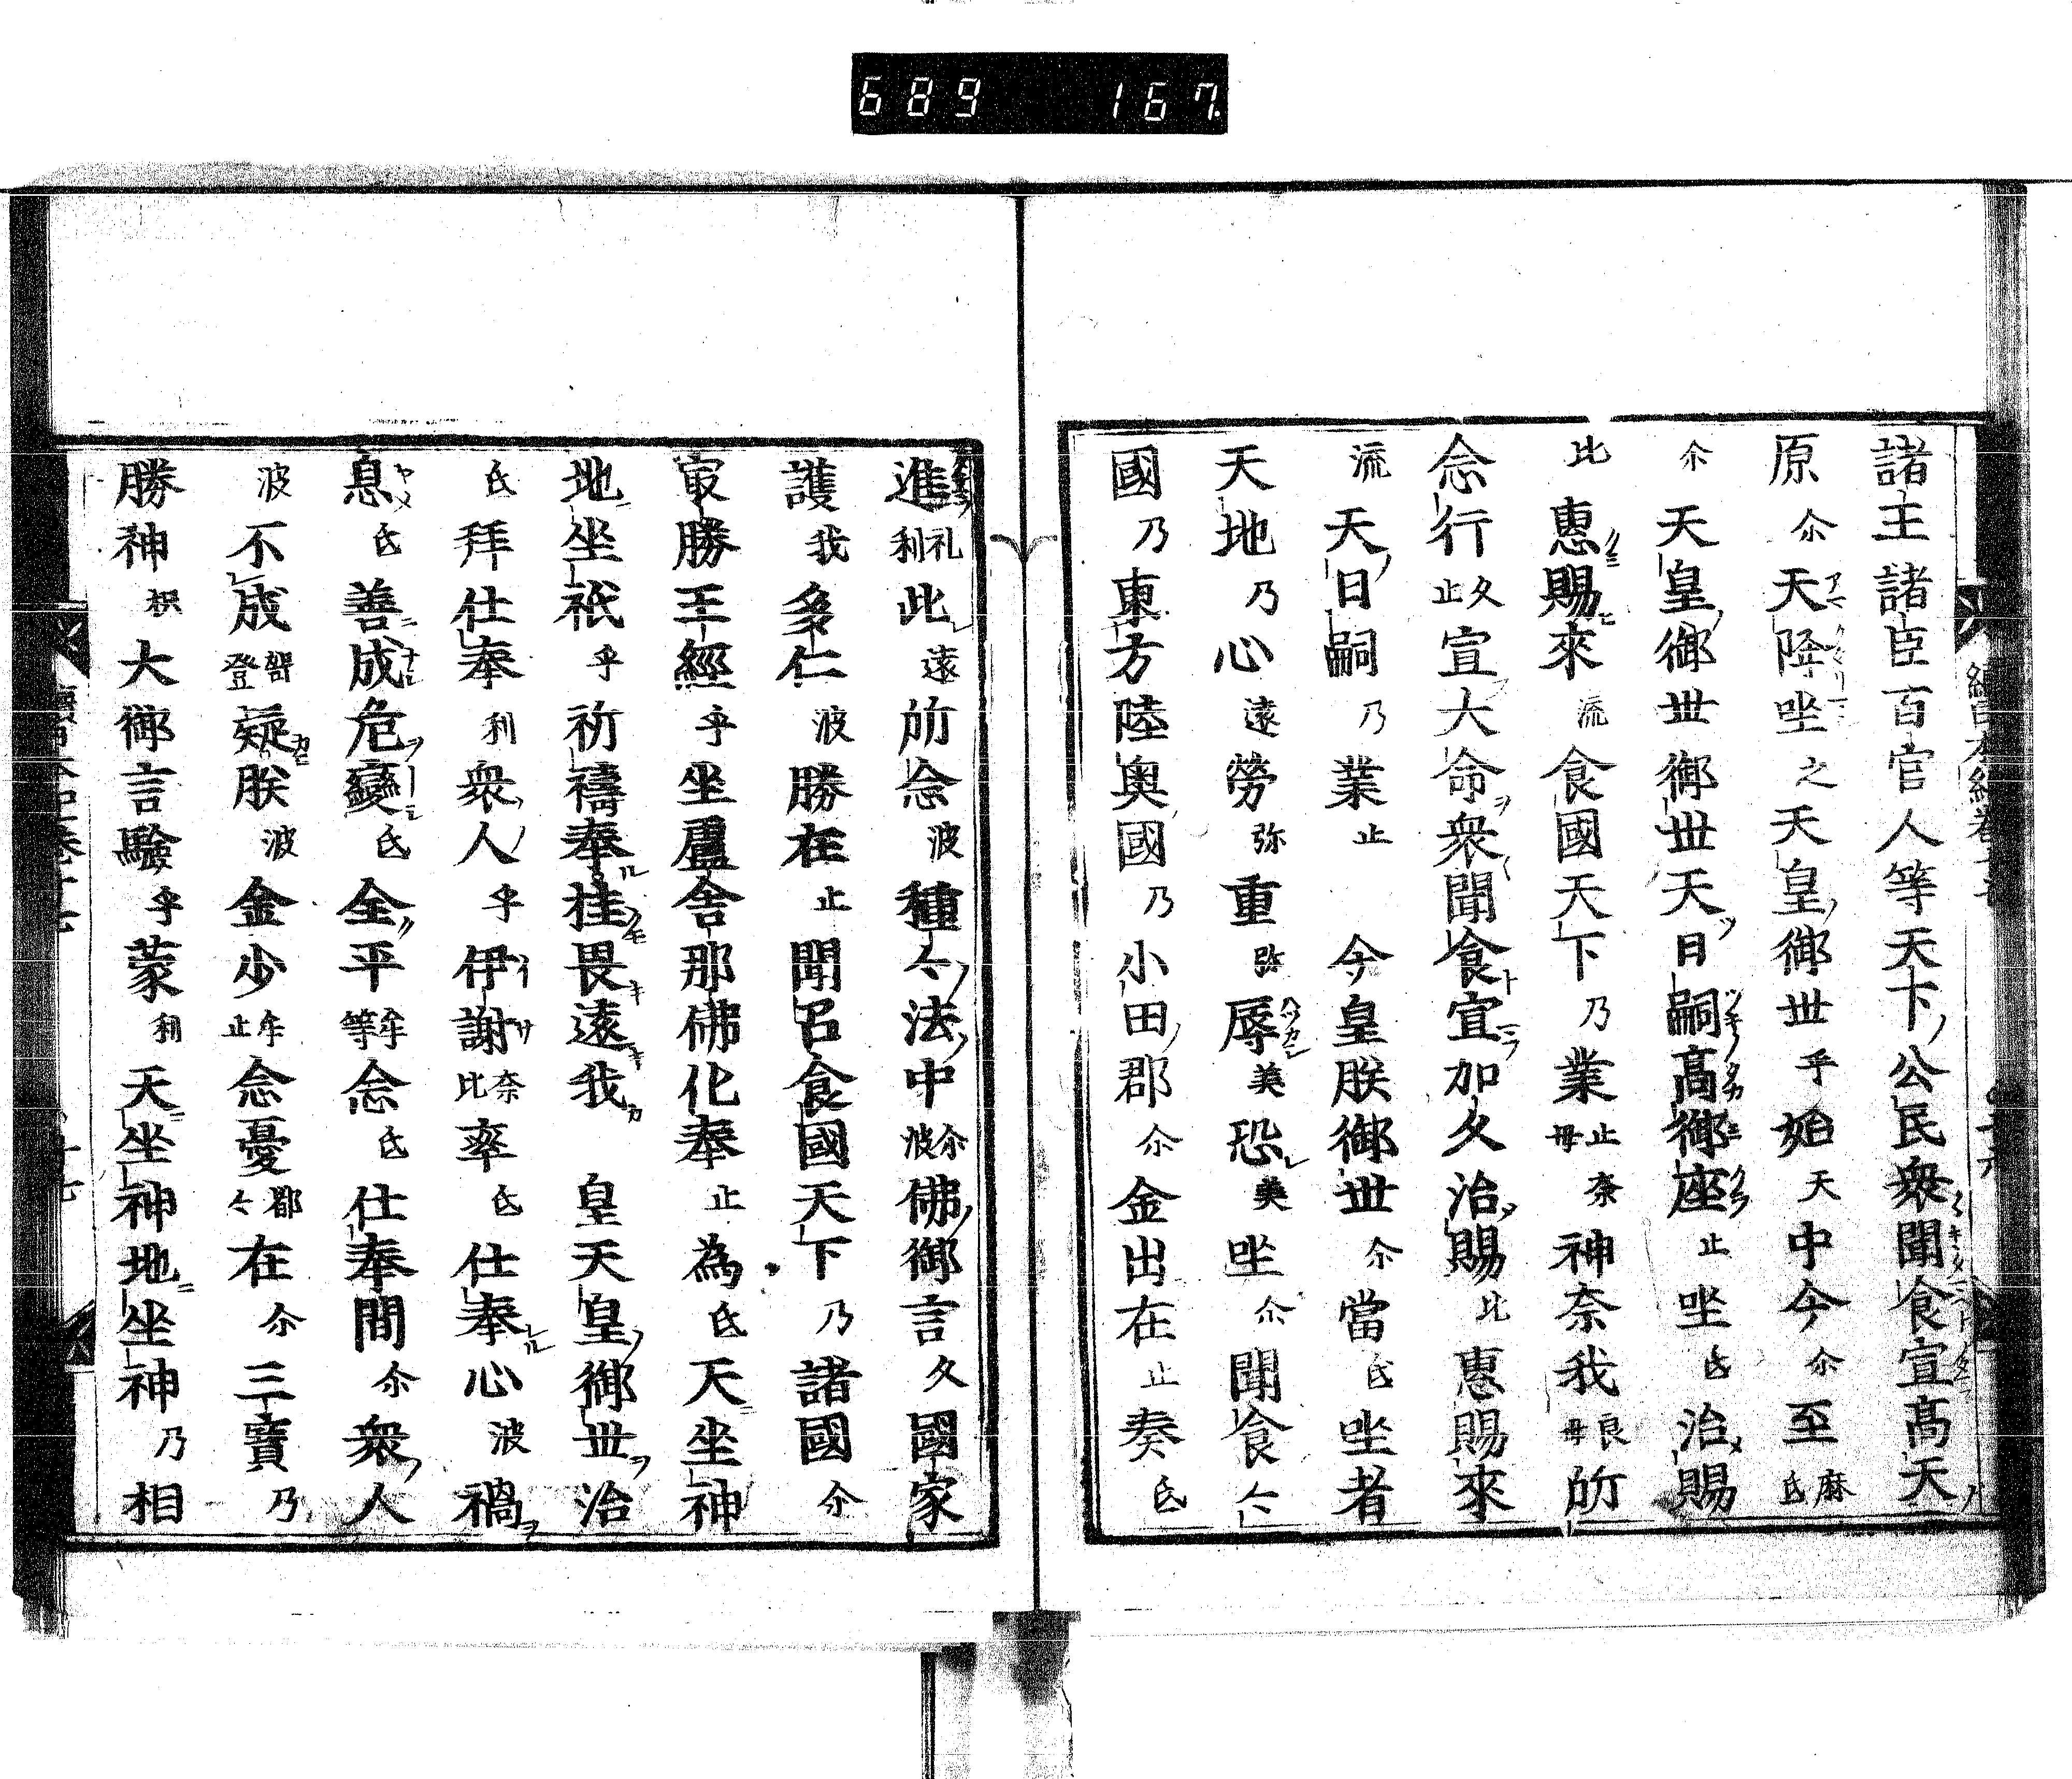 689 167
諸王諸臣百官人等天下公民衆聞食宣高天
原尒天降坐之天皇御世乎始天中今尒至麻氐
尒天皇御世御世天日嗣高御座止坐氐治賜
比惠賜來流食國天下乃業止毋奈神奈我良毋所
念行久止宣大命衆聞食宣加久治賜比惠賜來
流天日嗣乃業止今皇朕御世尒當氐坐者
天地乃心遠勞弥重弥辱美恐美坐尒聞食亽
國乃東方陸奥國乃小田郡尒金出在止奏氐
進礼利此遠所念波種亽法中尒波佛御言久國家
護我多仁波勝在止聞召食國天下乃諸國尒
㝡勝王經乎坐盧舍那佛化奉止為氐天坐神
地坐祇乎祈禱奉挂畏遠我皇天皇御世治
氐拜仕奉利衆人乎伊謝奈比率氐仕奉心波禍
息氐善成危變氐全平牟等念氐仕奉間尒衆人
波不成㗨登疑朕波金少牟止念憂都亽在尒三寶乃
勝神枳大御言驗乎蒙利天坐神地坐神乃相